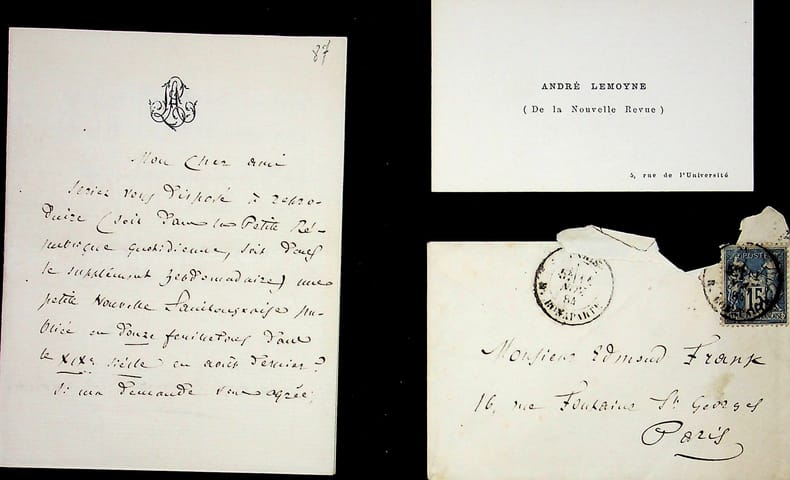 87
Mon cher ami
seriez vous disposé à repro-
duire (soit dans la Petite Ré-
publique quotidienne, soit dans
le supplément hebdomadaire) une
petite Nouvelle Saintongeaise pu-
bliée en douze feuilletons dans
le XIXe siècle en août dernier?
Si ma demande vous agrée,
ANDRÉ LEMOYNE
(De la Nouvelle Revue)
5, rue de l'Université
PARIS
84
R. BONAPARTE
POSTE
15
Monsieur Edmond Frank
16, rue Fontaine St Georges
Paris